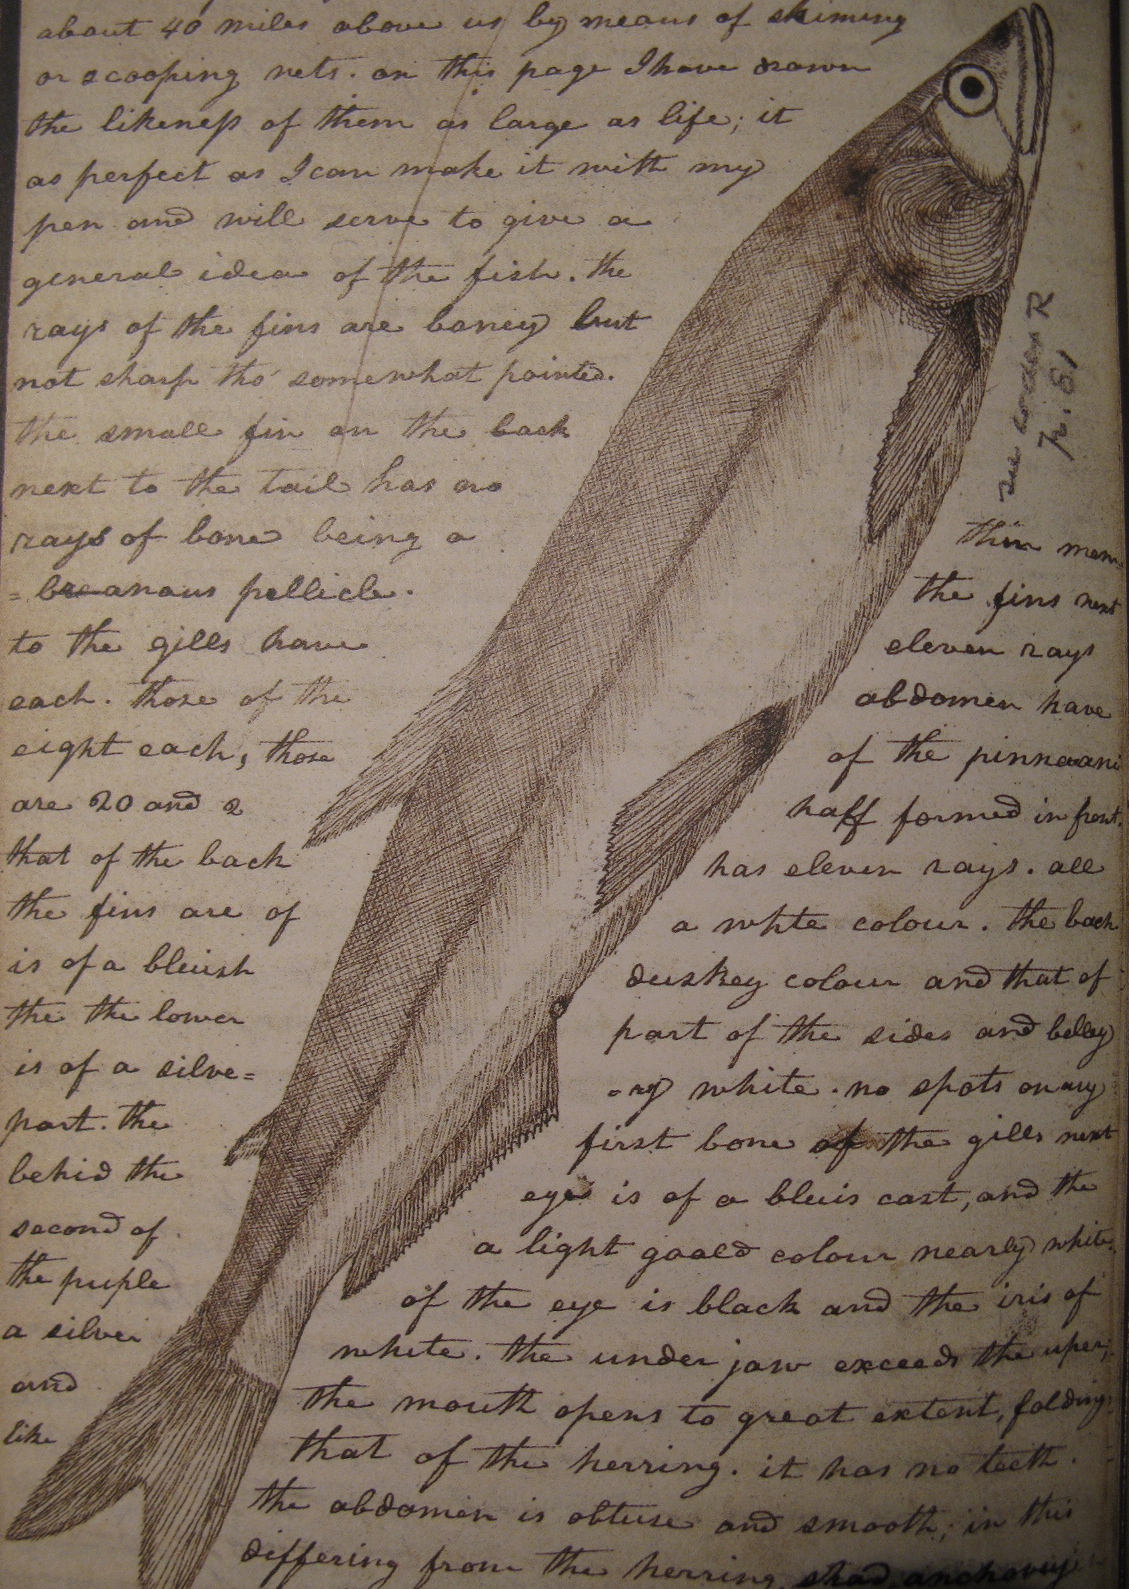 about 40 miles above us by means of skiming
or scooping nets. on this page I have drawn
the likeness of them as large as life; it
as perfect as I can make it with my
pen and will serve to give a
general idea of the fish. the
rays of the fins are boney but
not sharp tho' somewhat pointed.
the small fin on the back
next to the tail has no
rays of bone being a thin mem
=breanous pellicle. the fins next
to the gills have eleven rays
each. those of the abdomen have
eight each, those of the pinnaani
are 20 and 2 haff formed in front.
that of the back has eleven rays. all
the fins are of a white colour. the back
is of a bleuish duskey colour and that of
the the lower part of the sides and belley
is of a silve= -ry white. no spots on any
part. the first bone of the gills next
behid the eye is of a bleuis cast, and the
second of a light goald colour nearly white.
the puple of the eye is black and the iris of
a silver white. the under jaw exceeds the uper;
and the mouth opens to great extent, folding
like that of the herring. it has no teeth.
the abdomen is obtuse and smooth; in this
differing from the herring, shad anchovy
see codex R
p. 81